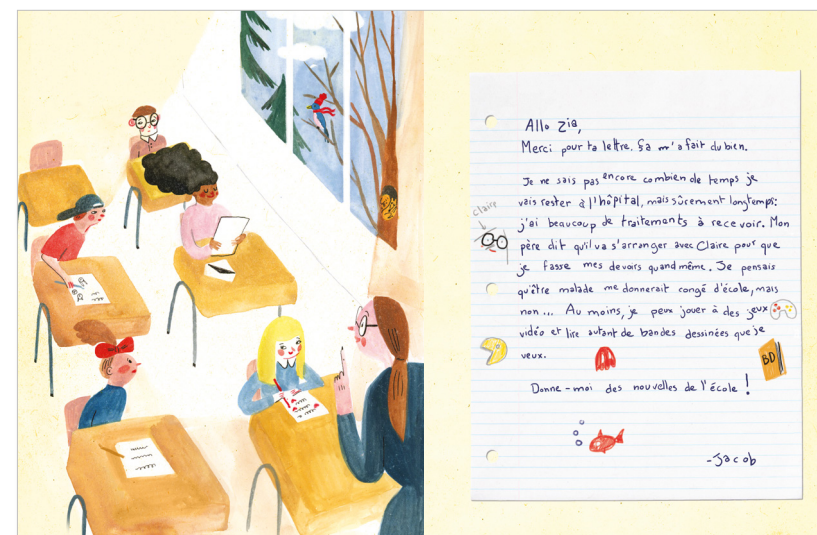 Allo Zia,
Merci pour ta lettre. Ça m'a fait du bien.
Je ne sais pas encore combien de temps je
vais rester à l'hôpital, mais sûrement longtemps:
j'ai beaucoup de traitements à recevoir. Mon
père dit qu'il va s'arranger avec Claire pour que
je fasse mes devoirs quand même. Je pensais
qu'être malade me donnerait congé d'école, mais
non... Au moins, je peux jouer à des jeux
vidéo et lire autant de bandes dessinées que je
veux.
Donne-moi des nouvelles de l'école!
-Jacob
Claire
BD